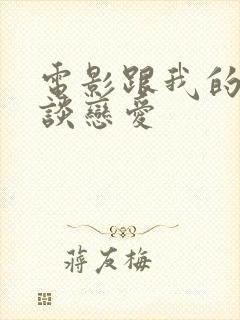 電影跟我的
談戀愛
蔣友梅